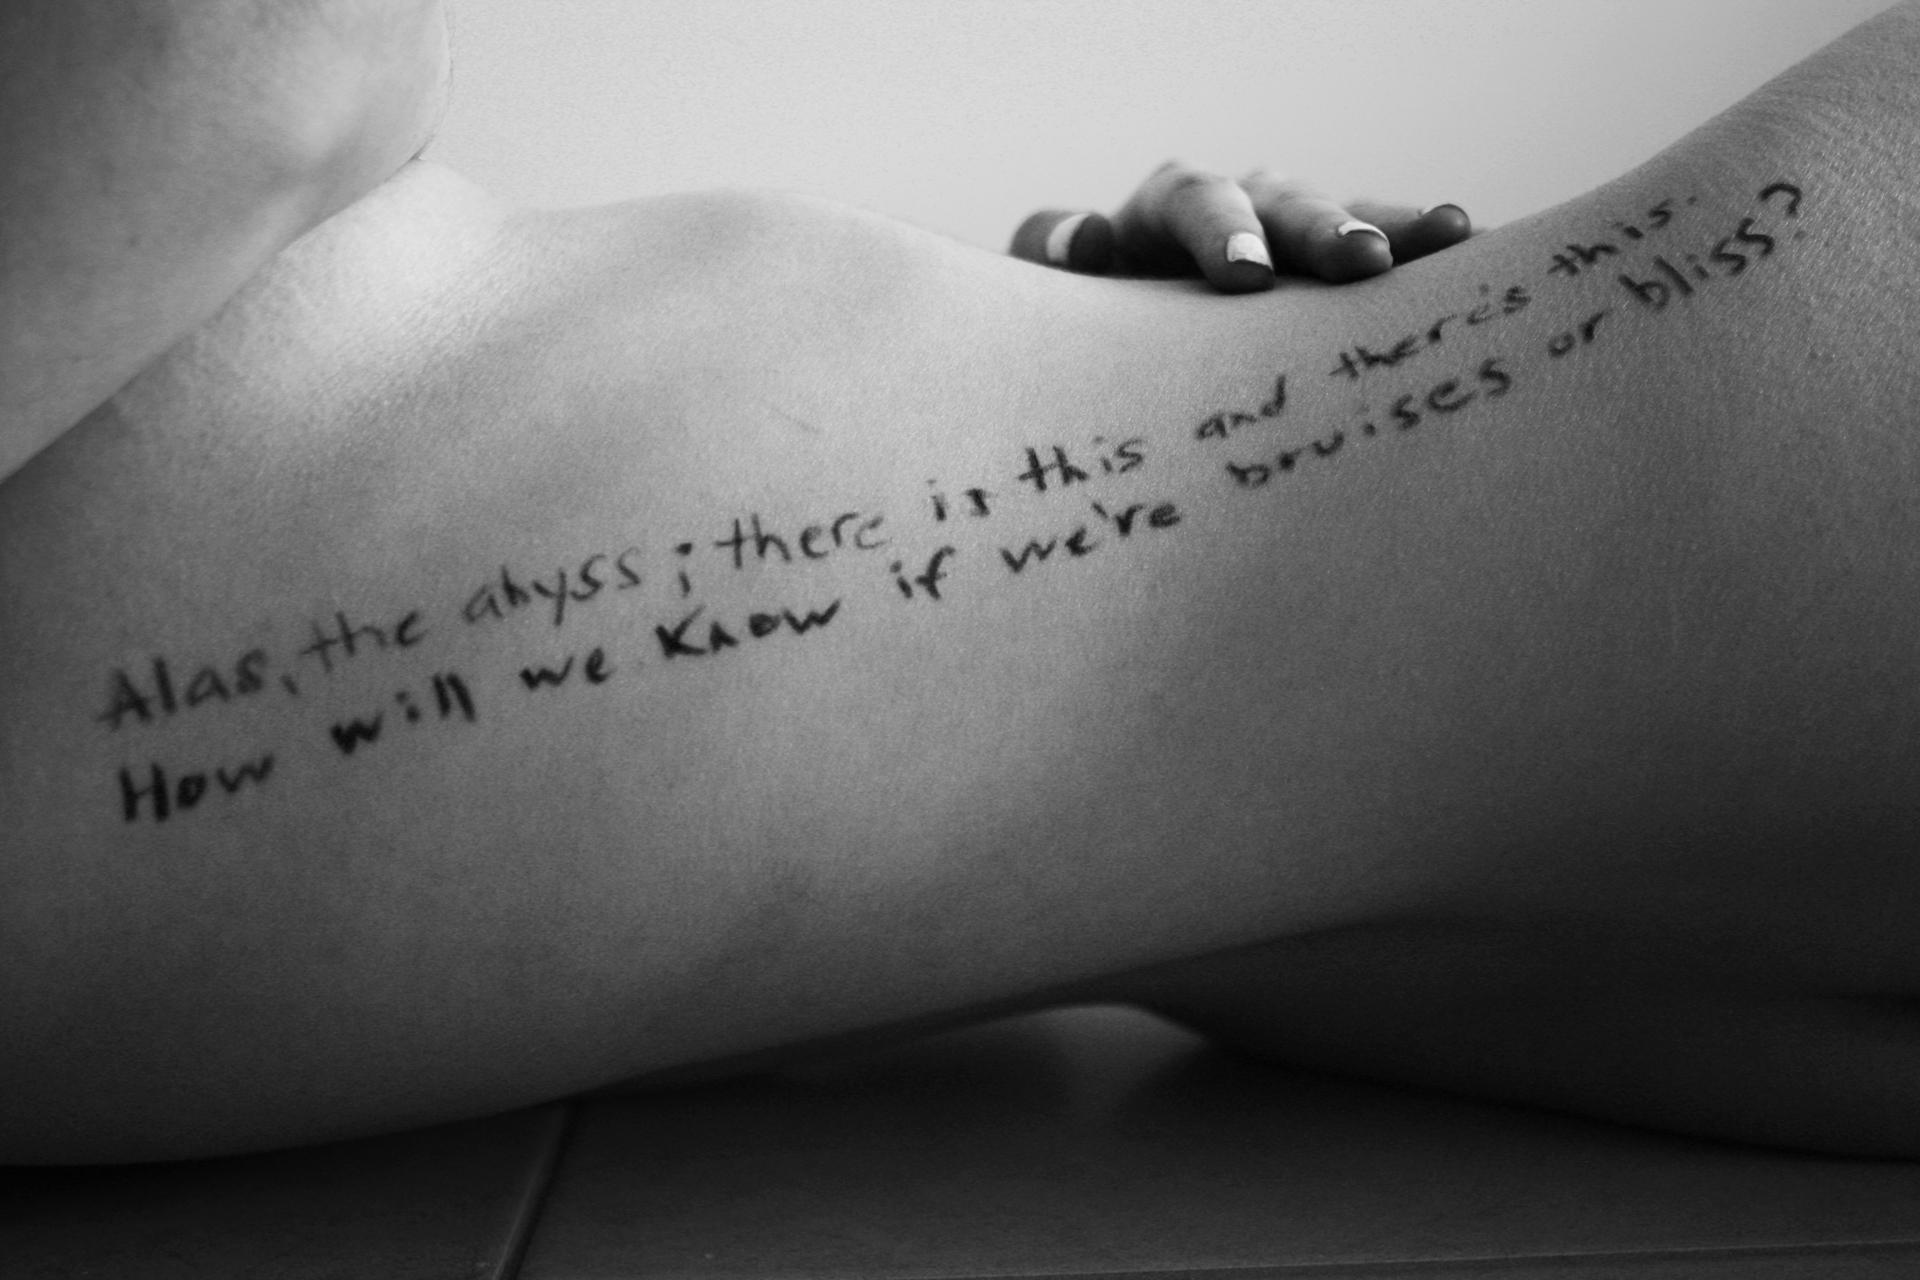 Alas, the abyss; there is this and there's this.
How will we know if we're bruises or bliss?